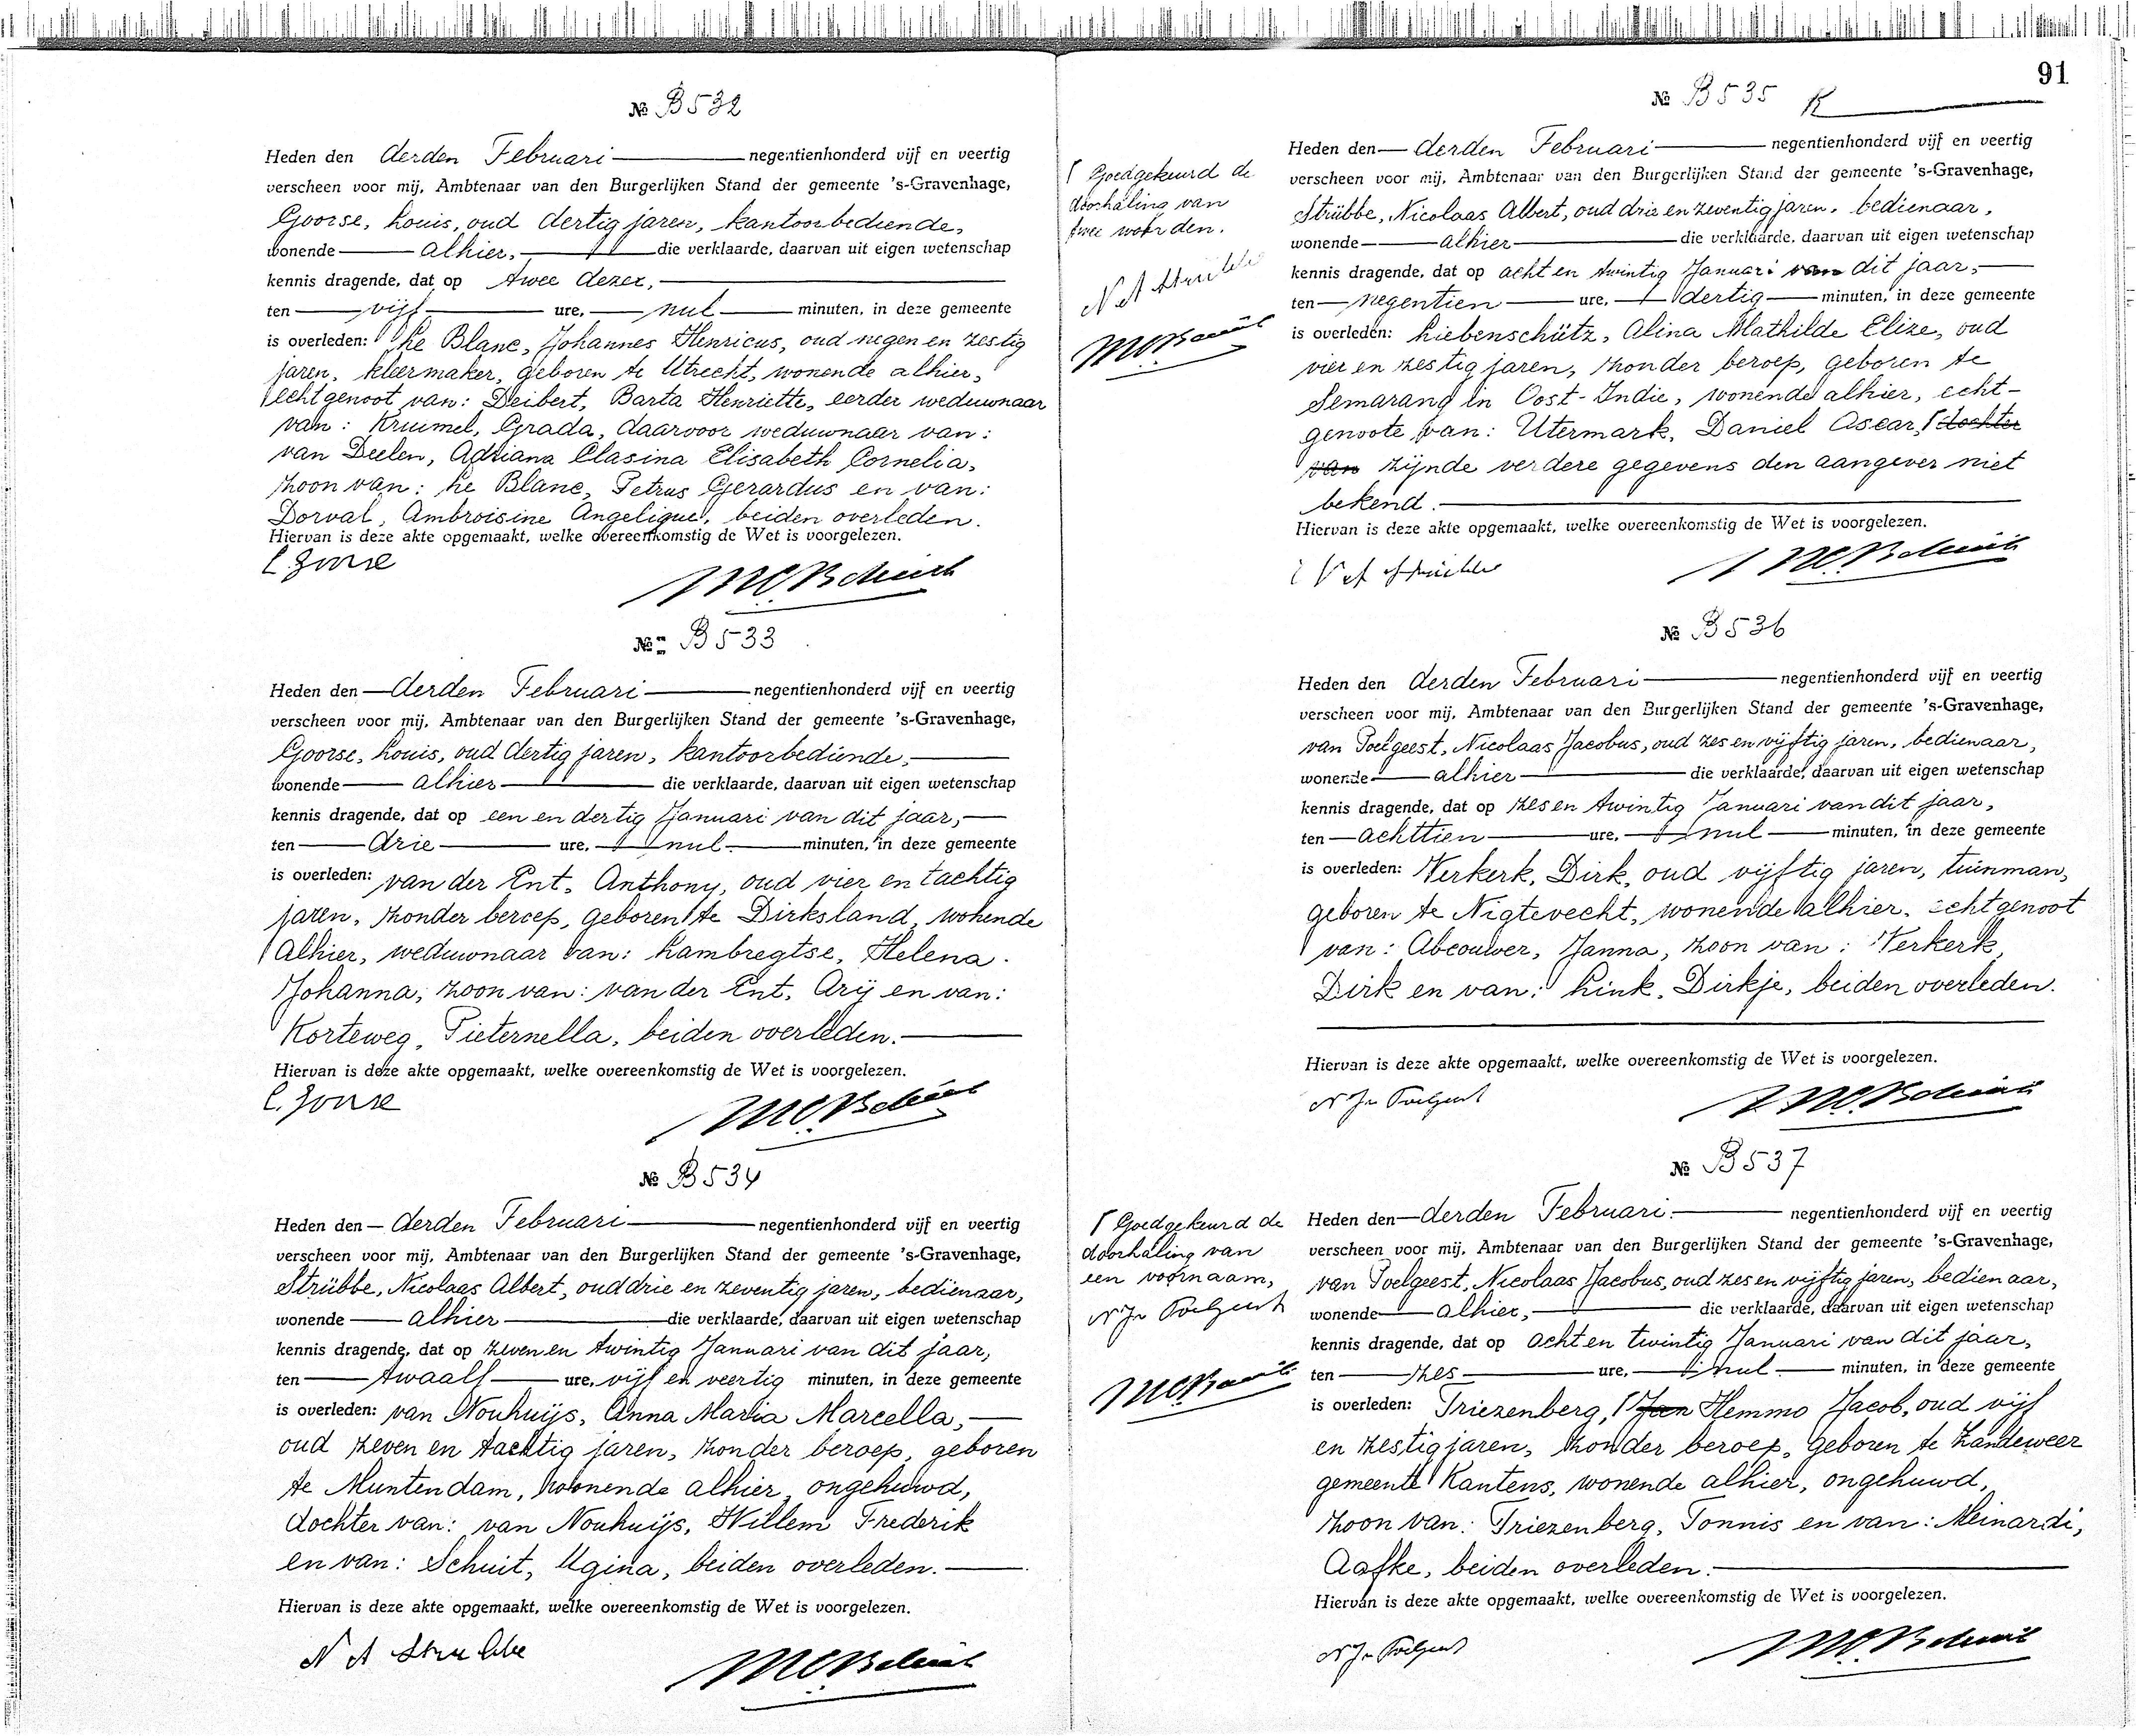 № B532
Heden den derden Februari negentienhonderd vijf en veertig
verscheen voor mij, Ambtenaar van den Burgerlijken Stand der gemeente 's-Gravenhage,
Goorse, Louis, oud dertig jaren, kantoorbediende,
wonende alhier, die verklaarde, daarvan uit eigen wetenschap
kennis dragende, dat op twee dezer,
ten vijf ure, nul minuten, in deze gemeente
is overleden: Le Blanc, Johannes Henricus, oud negen en zestig
jaren, kleermaker, geboren te Utrecht, wonende alhier,
echtgenoot van: Deibert, Barta Henriette, eerder weduwnaar
van: Kruimel, Grada, daarvoor weduwnaar van:
van Deelen, Adriana Clasina Elisabeth Cornelia,
zoon van: Le Blanc, Petrus Gerardus en van:
Dorval, Ambroisine Angelique, beiden overleden.
Hiervan is deze akte opgemaakt, welke overeenkomstig de Wet is voorgelezen.
L. Goorse
№ B533
Heden den derden Februari negentienhonderd vijf en veertig
verscheen voor mij, Ambtenaar van den Burgerlijken Stand der gemeente 's-Gravenhage,
Goorse, Louis, oud dertig jaren, kantoorbediende,
wonende alhier die verklaarde, daarvan uit eigen wetenschap
kennis dragende, dat op een en dertig Januari van dit jaar,
ten drie ure, nul minuten, in deze gemeente
is overleden: van der Ent, Anthony, oud vier en tachtig
jaren, zonder beroep, geboren te Dirksland, wonende
alhier, weduwnaar van: Lambregtse, Helena
Johanna, zoon van: van der Ent, Arij en van:
Korteweg, Pieternella, beiden overleden.
Hiervan is deze akte opgemaakt, welke overeenkomstig de Wet is voorgelezen.
L. Goorse
№ B534
Heden den derden Februari negentienhonderd vijf en veertig
verscheen voor mij, Ambtenaar van den Burgerlijken Stand der gemeente 's-Gravenhage,
Strübbe, Nicolaas Albert, oud drie en zeventig jaren, bedienaar,
wonende alhier die verklaarde, daarvan uit eigen wetenschap
kennis dragende, dat op zeven en twintig Januari van dit jaar,
ten twaalf ure, vijf en veertig minuten, in deze gemeente
is overleden: van Nouhuijs, Anna Maria Marcella,
oud zeven en tachtig jaren, zonder beroep, geboren
te Muntendam, wonende alhier, ongehuwd,
dochter van: van Nouhuijs, Willem Frederik
en van: Schuit, Ugina, beiden overleden.
Hiervan is deze akte opgemaakt, welke overeenkomstig de Wet is voorgelezen.
N A Strubbe
91
№ B535 K
Heden den derden Februari negentienhonderd vijf en veertig
verscheen voor mij, Ambtenaar van den Burgerlijken Stand der gemeente 's-Gravenhage,
Strübbe, Nicolaas Albert, oud drie en zeventig jaren, bedienaar,
wonende alhier die verklaarde, daarvan uit eigen wetenschap
kennis dragende, dat op acht en twintig Januari van dit jaar,
ten negentien ure, dertig minuten, in deze gemeente
is overleden: Liebenschütz, Alina Mathilde Elize, oud
vier en zestig jaren, zonder beroep, geboren te
Semarang in Oost-Indie, wonende alhier, echt-
genoote van: Utermark, Daniel Oscar, dochter
van zijnde verdere gegevens den aangever niet
bekend.
Hiervan is deze akte opgemaakt, welke overeenkomstig de Wet is voorgelezen.
Goedgekeurd de
doorhaling van
twee woorden.
N A Strubbe
№ B536
Heden den derden Februari negentienhonderd vijf en veertig
verscheen voor mij, Ambtenaar van den Burgerlijken Stand der gemeente 's-Gravenhage,
van Poelgeest, Nicolaas Jacobus, oud zes en vijftig jaren, bedienaar,
wonende alhier die verklaarde, daarvan uit eigen wetenschap
kennis dragende, dat op zes en twintig Januari van dit jaar,
ten achttien ure, nul minuten, in deze gemeente
is overleden: Verkerk, Dirk, oud vijftig jaren, tuinman,
geboren te Nigtevecht, wonende alhier, echtgenoot
van: Abcouwer, Janna, zoon van: Verkerk,
Dirk en van: Link, Dirkje, beiden overleden.
Hiervan is deze akte opgemaakt, welke overeenkomstig de Wet is voorgelezen.
N J v Poelgeest
№ B537
Heden den derden Februari negentienhonderd vijf en veertig
verscheen voor mij, Ambtenaar van den Burgerlijken Stand der gemeente 's-Gravenhage,
van Poelgeest, Nicolaas Jacobus, oud zes en vijftig jaren, bedienaar,
wonende alhier, die verklaarde, daarvan uit eigen wetenschap
kennis dragende, dat op acht en twintig Januari van dit jaar,
ten zes ure, nul minuten, in deze gemeente
is overleden: Triezenberg, Jan Hemmo Jacob, oud vijf
en zestig jaren, zonder beroep, geboren te Zandeweer
gemeente Kantens, wonende alhier, ongehuwd,
zoon van: Triezenberg, Tonnis en van: Meinardi,
Aafke, beiden overleden.
Hiervan is deze akte opgemaakt, welke overeenkomstig de Wet is voorgelezen.
N J v Poelgeest
Goedgekeurd de
doorhaling van
een voornaam,
N J v Poelgeest